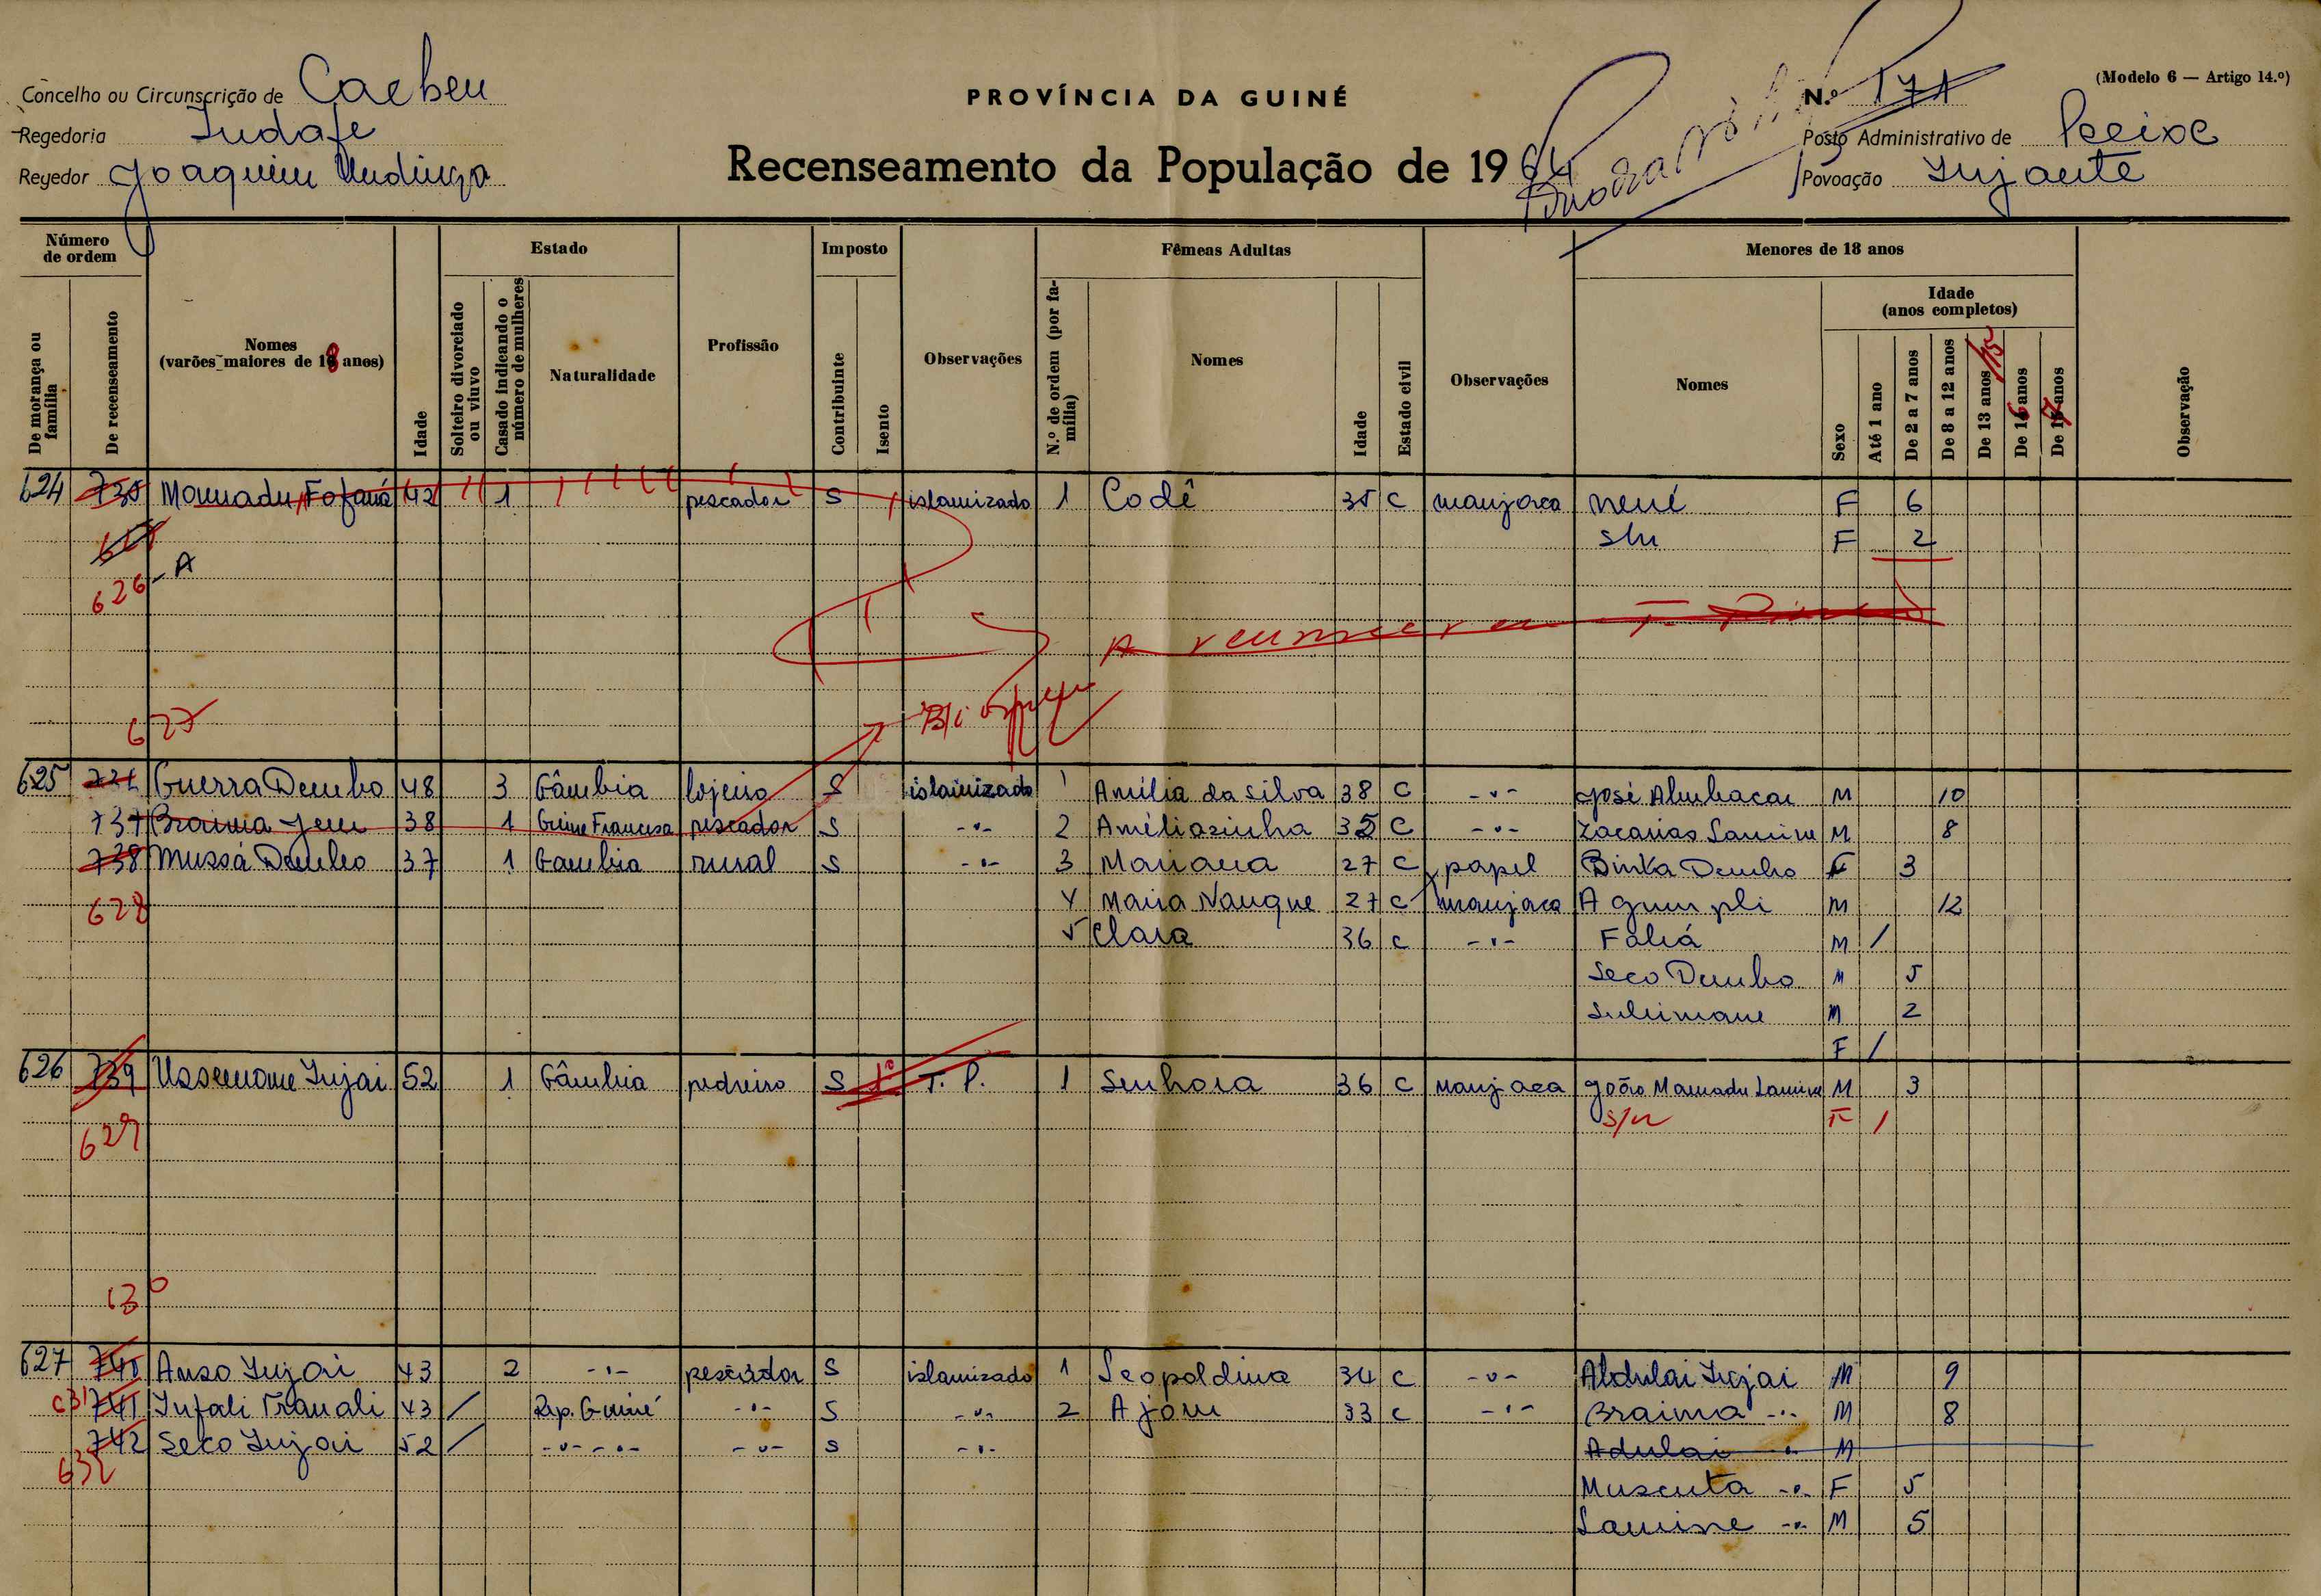 Concelho ou Circunscrição de Caebeu
PROVÍNCIA DA GUINÉ
N.º 171
(Modelo 6 — Artigo 14.º)
Regedoria Indafe
Posto Administrativo de Peixe
Regedor Joaquim Undinga
Recenseamento da População de 1964
Povoação Injante
Número de ordem
De morança ou família
De recenseamento
Nomes (varões maiores de 18 anos)
Idade
Estado
Solteiro divorciado ou viuvo
Casado indicando o número de mulheres
Naturalidade
Profissão
Imposto
Contribuinte
Isento
Observações
Fêmeas Adultas
N.º de ordem (por família)
Nomes
Idade
Estado civil
Observações
Menores de 18 anos
Nomes
Idade (anos completos)
Sexo
Até 1 ano
De 2 a 7 anos
De 8 a 12 anos
De 13 anos /15
De 16 anos
De 17 anos
Observação
624 735 Mamadu Fofaná 42 1 pescador S islamizado 1 Codê 35 C manjaca nené F 6
s/n F 2
626-A
627
625 736 Guerra Dembo 48 3 Gâmbia lojeiro S islamizado 1 Amília da Silva 38 C -"- José Abubacar M 10
737 Braima Jem 38 1 Guine Francesa pescador S -"- 2 Améliasinha 35 C -"- Zacarias Lamine M 8
738 Mussá Dembo 37 1 Gambia rural S -"- 3 Mariana 27 C papel Binta Dembo F 3
628 4 Maria Nanque 27 C manjaca A gum pli M 12
5 Clara 36 C -"- Faliá M /
Seco Dembo M 5
Sulimane M 2
F /
626 739 Ussumane Injai 52 1 Gâmbia pedreiro S T. P. 1 Senhora 36 C manjaca João Mamadu Lamine M 3
629 s/n F /
630
627 740 Anso Injai 43 2 -"- pescador S islamizado 1 Leopoldina 34 C -"- Abdulai Injai M 9
631 741 Infali Tranali 43 / Rep. Guiné -"- S -"- 2 Ajom 33 C -"- Braima -"- M 8
742 Seco Injai 52 / -"- -"- -"- S -"- Adulai " M
632 Muscuta -"- F 5
Lamine -"- M 5